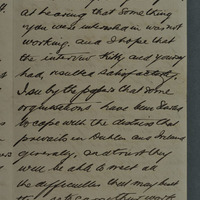 at hearing that something
you were interested in was not
working, and I hope that
the interview Kitty and you may
had, resulted satisfactorily.
I see by the papers that some
organisations have been started
to cope with the distress that
prevails in Dublin and Ireland
generally, and trust they
will be able to meet all
the difficulties that may beset